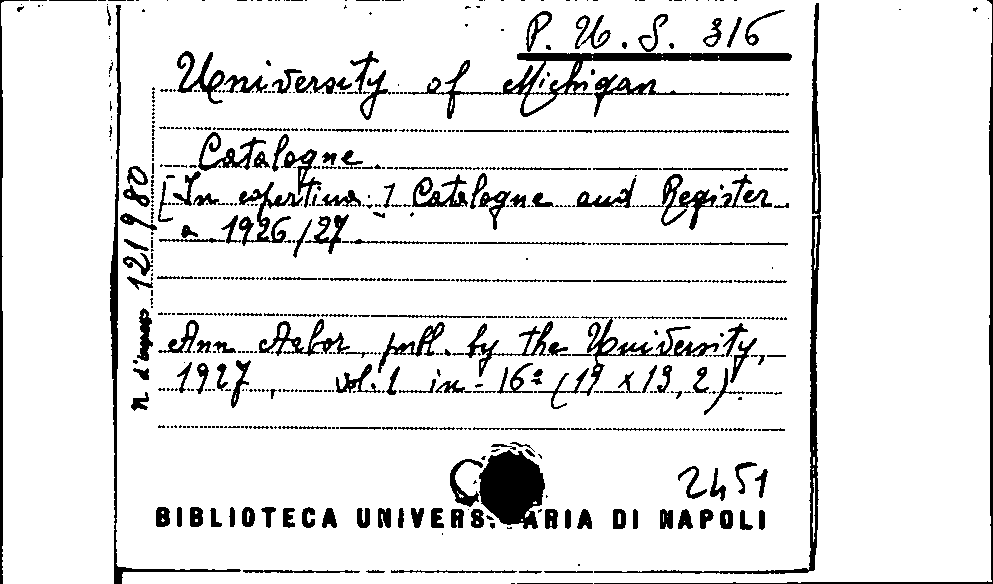 P. U. S. 316
University of Michigan.
Catalogne.
[In copertina:] Catalogne and Register.
a. 1926/27.
Ann Arbor, publ. by the University,
1927, vol. 1 in-16º (19 x 13,2).
n d'ingresso 121980
2451
BIBLIOTECA UNIVERS ARIA DI NAPOLI